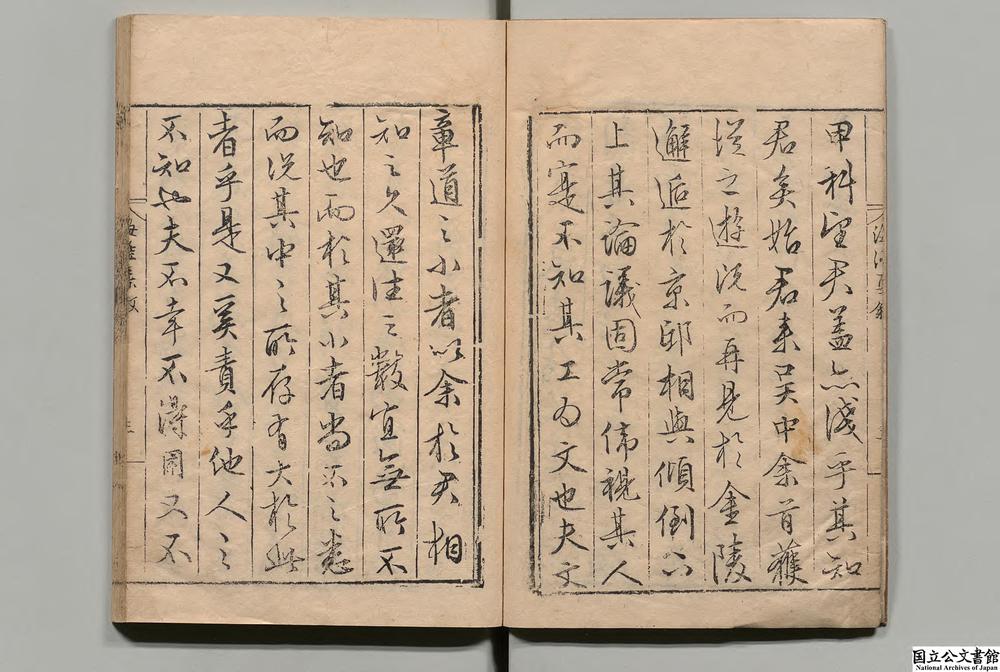 甲科望君蓋亦淺乎其知
君矣始君来吴中余首獲
從之遊既而再見於金陵
邂逅於京邸相與傾倒言
上其論議固常偉視其人
而寔不知其工为文也夫文
章道之小者以余於君相
知之久還往之數宜無所不
知也而於其小者尚不之悉
而况其中之所存有大於此
者乎是又奚責乎他人之
不知也夫不幸不得圖又不
国立公文書館
National Archives of Japan